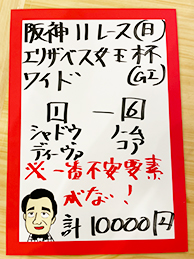 阪神11レース(日)
エリザベス女王杯
ワイド (GI)
1 — 6
シャドウ ノーム
ディーヴァ コア
※一番不安要素
がない!
計10000円